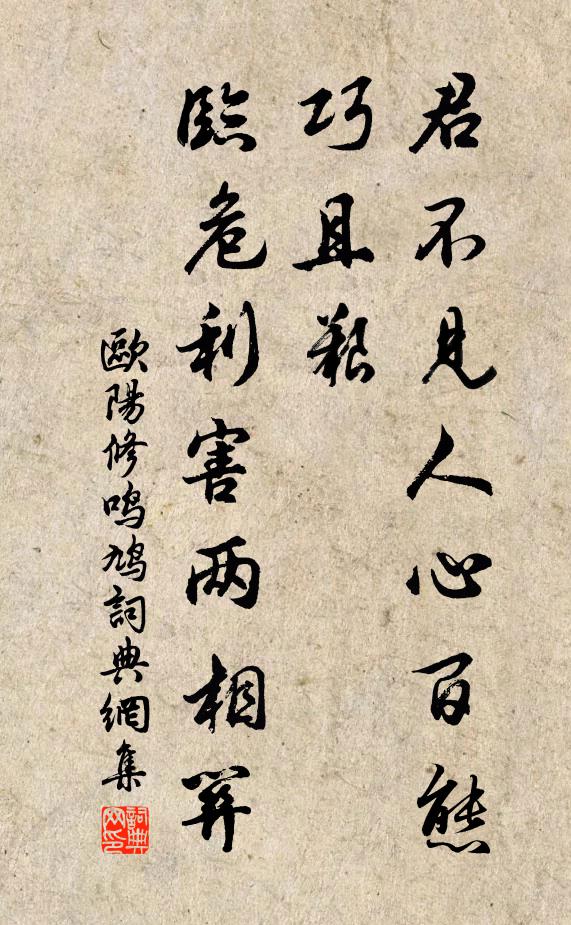 君不見人心百態
巧且艱
臨危利害两相關
歐陽修鳴鳩詞典網集
詞典
网印